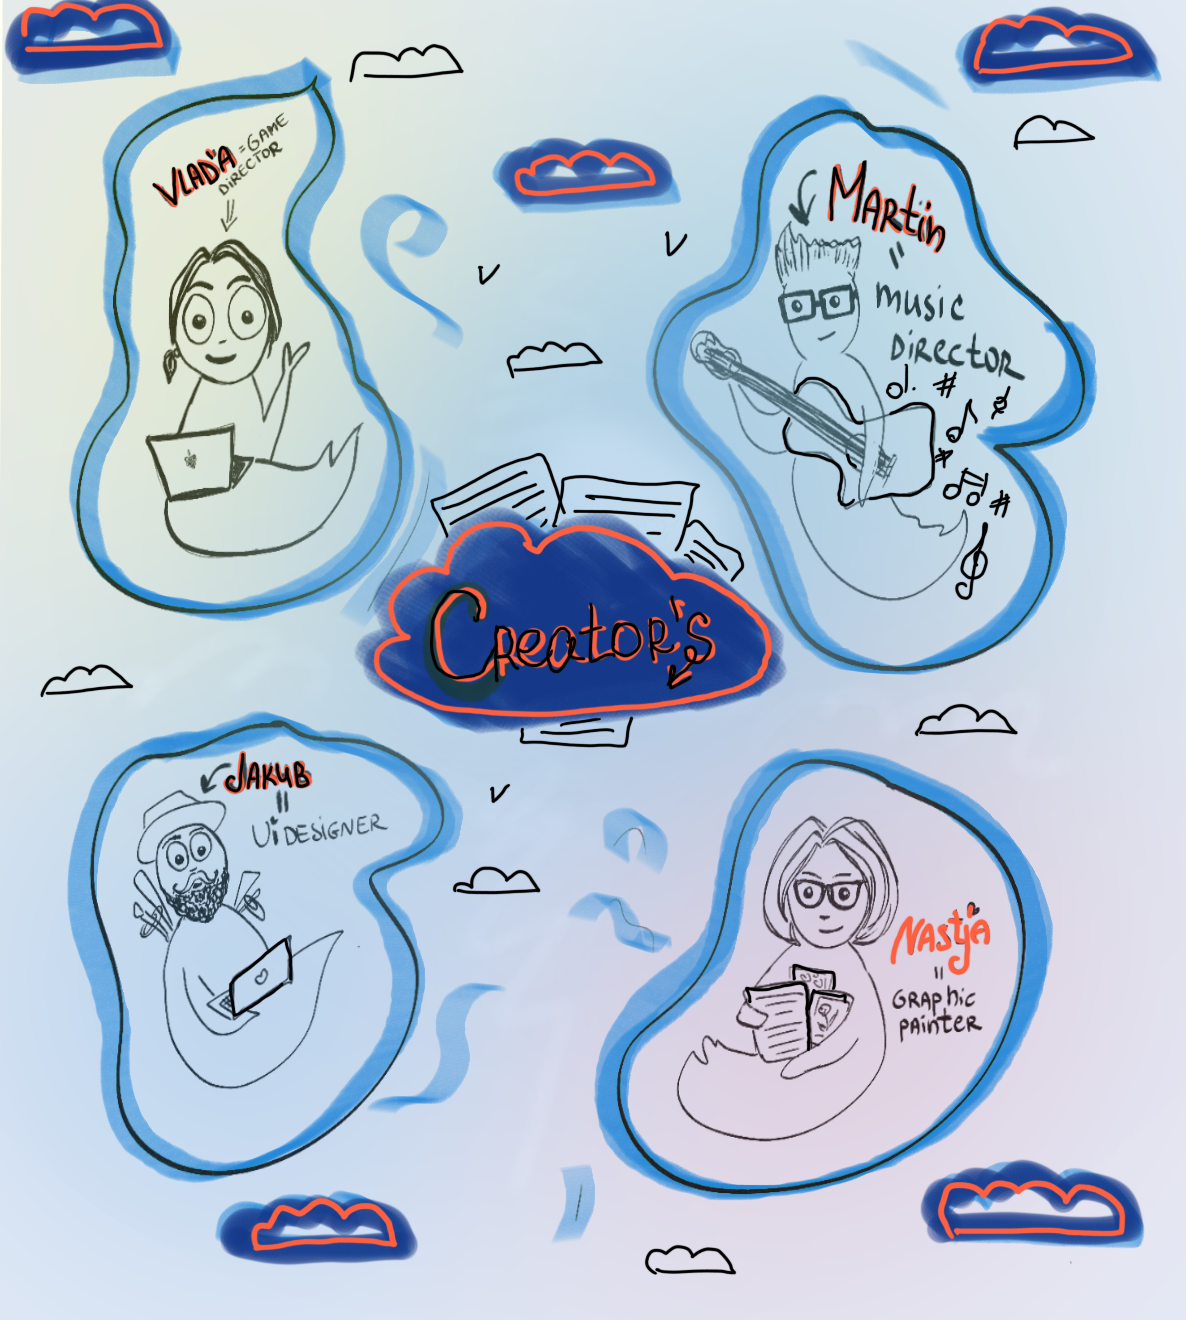 VLADiA = GAME
DIRECTOR
MARtin
=
music
DiRectoR
CReatoR's
JAKUB
=
Ui DESiGNER
NAStja
=
GRAPhic
PAiNtER